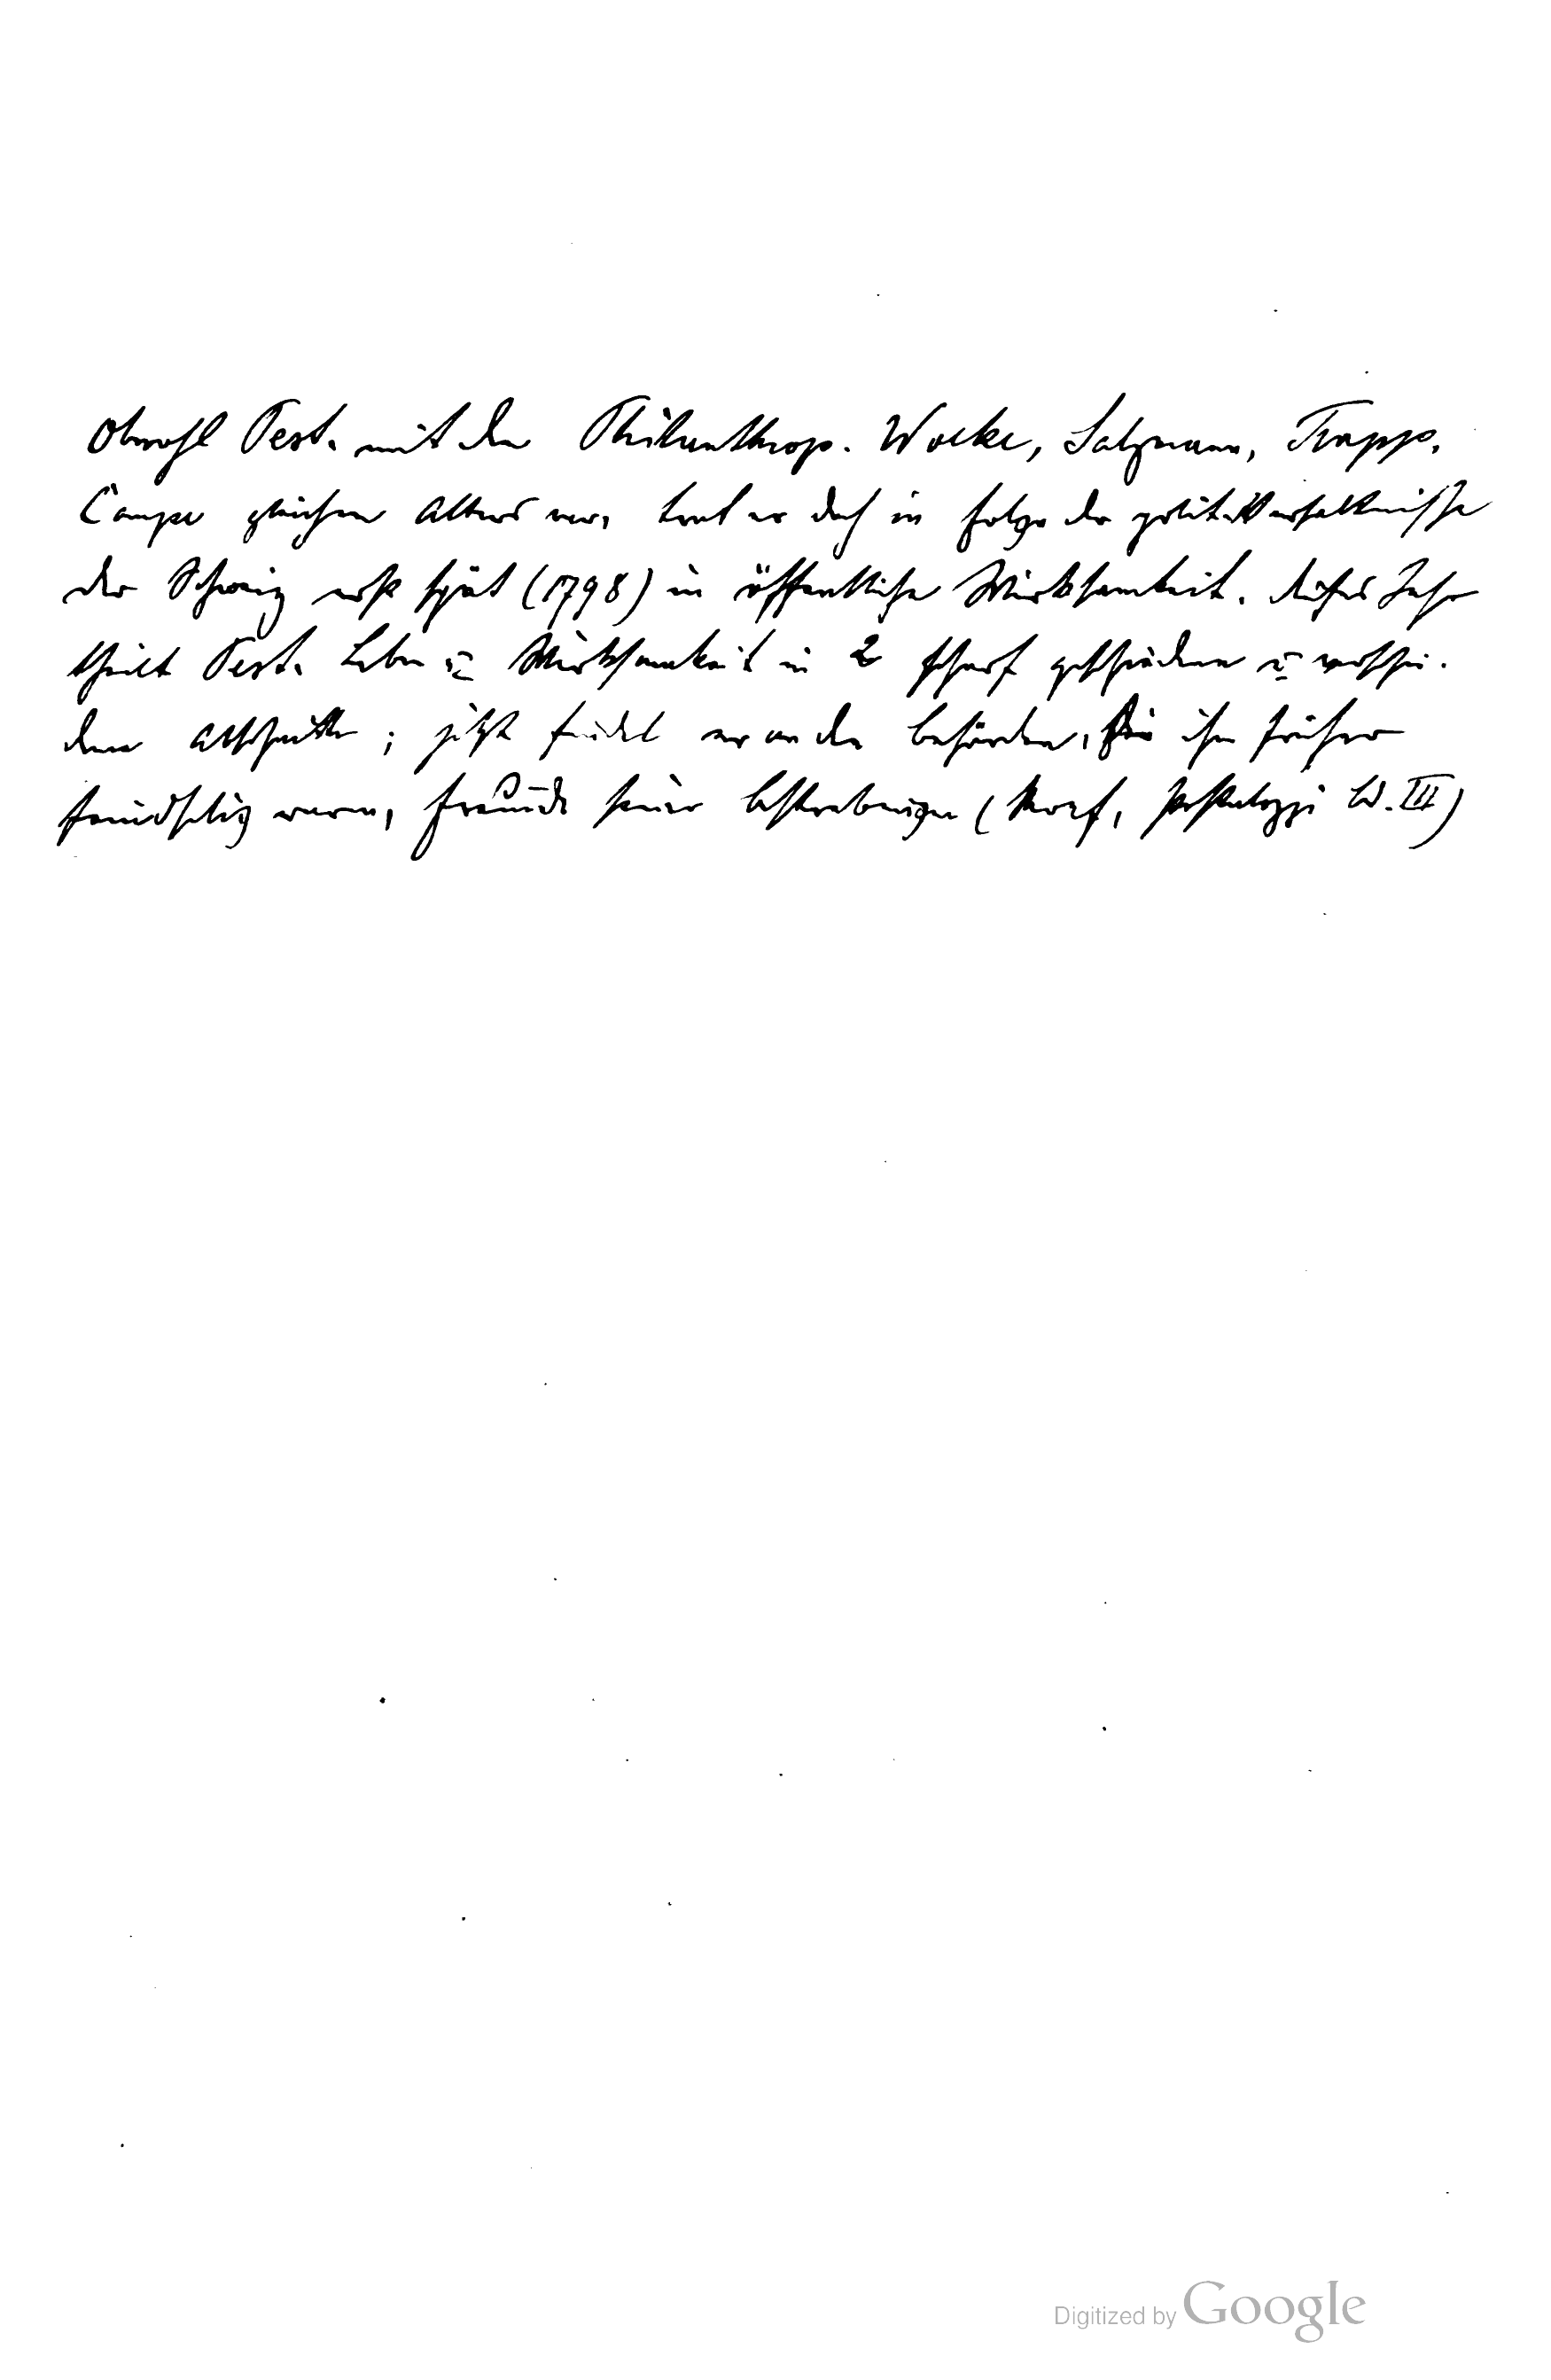 Obwohl Pest. mit den Philanthrop. Wolke, Salzmann, Trapp,
Campe gleichen Alters war, trat er doch in Folge der polit. Verhältnisse
der Schweiz erst spät (1798) in öffentliche Wirksamkeit. Dieses Jahr
theilt Pest. Leben u. Wirksamkeit in 2 scharf geschiedene u. verschie-
dene Abschnitte; jetzt findet er an den Behörden, die ihm früher
feindselig waren, Freunde seiner Bestrebungen (Morf, Pestalozzi Bd. III)
Digitized by Google